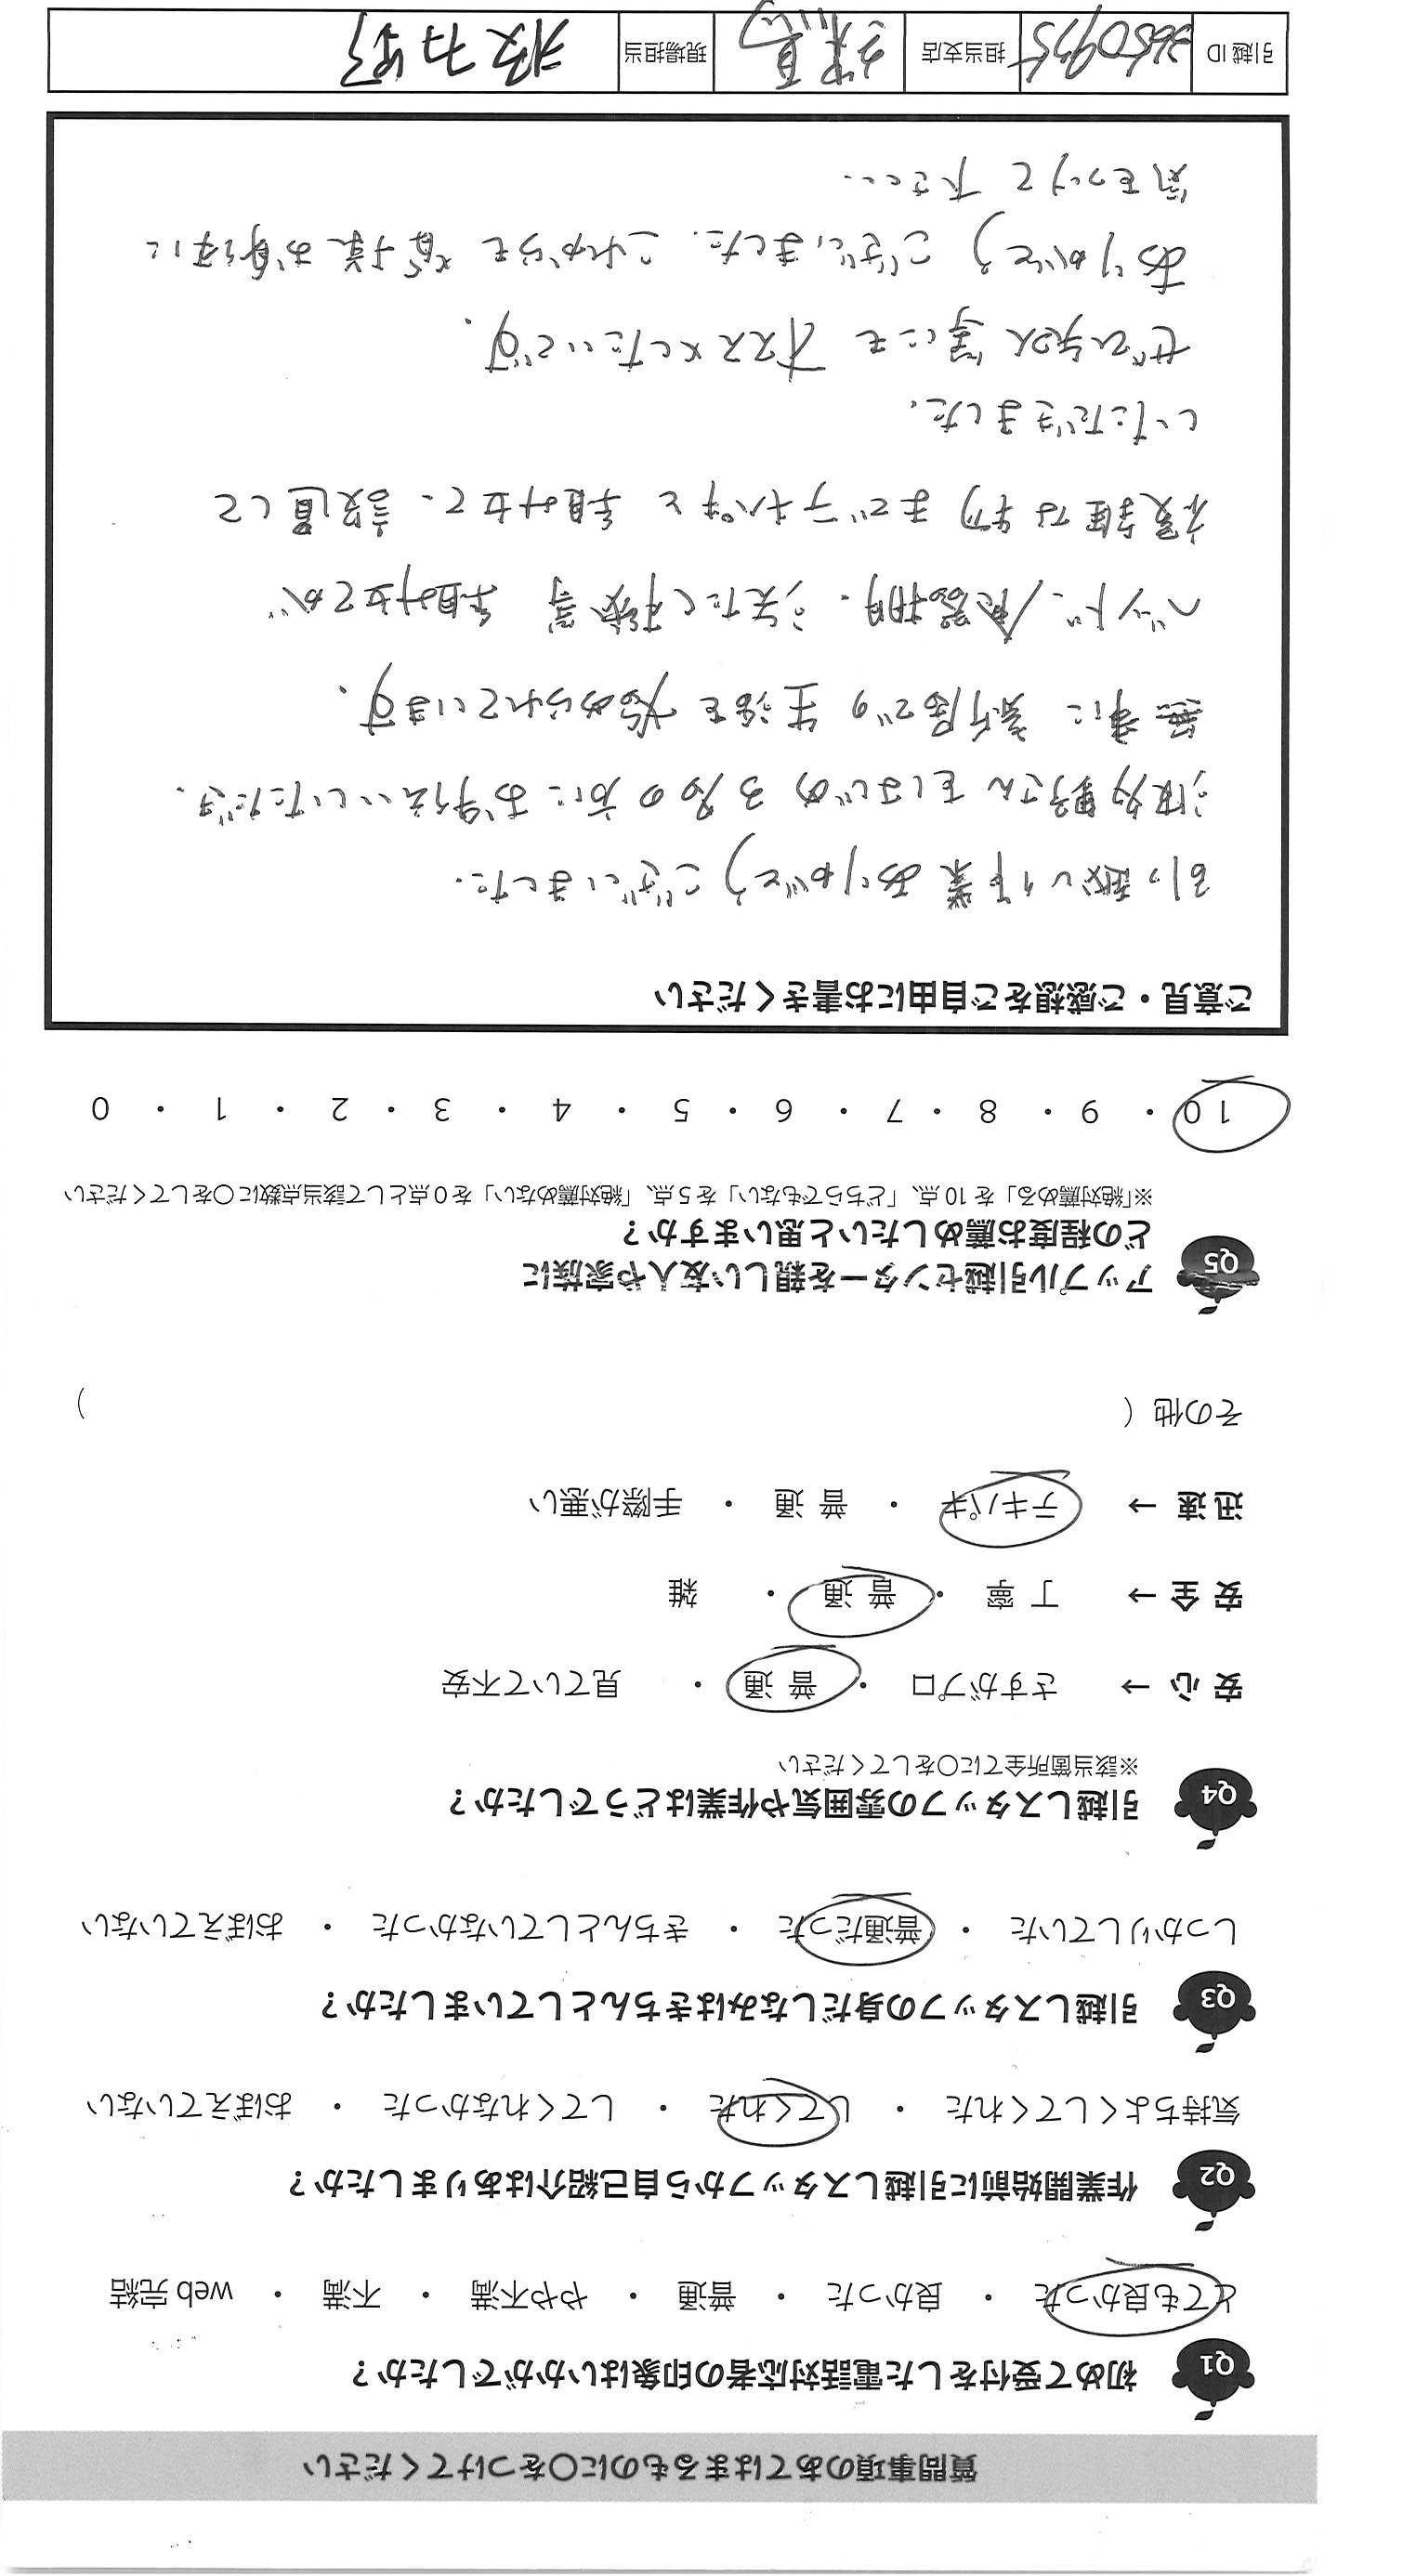 質問事項のあてはまるものに○をつけてください
Q1 初めて受付をした電話対応者の印象はいかがでしたか?
とても良かった ・ 良かった ・ 普通 ・ やや不満 ・ 不満 ・ web 完結
Q2 作業開始前に引越しスタッフから自己紹介はありましたか?
気持ちよくしてくれた ・ してくれた ・ してくれなかった ・ おぼえていない
Q3 引越しスタッフの身だしなみはきちんとしていましたか?
しっかりしていた ・ 普通だった ・ きちんとしていなかった ・ おぼえていない
Q4 引越しスタッフの雰囲気や作業はどうでしたか?
※該当箇所全てに○をしてください
安心 → さすがプロ ・ 普通 ・ 見ていて不安
安全 → 丁寧 ・ 普通 ・ 雑
迅速 → テキパキ ・ 普通 ・ 手際が悪い
その他 ( )
Q5 アップル引越センターを親しい友人や家族に
どの程度お薦めしたいと思いますか?
※「絶対薦める」を 10 点、「どちらでもない」を 5 点、「絶対薦めない」を 0 点として該当点数に○をしてください
10 ・ 9 ・ 8 ・ 7 ・ 6 ・ 5 ・ 4 ・ 3 ・ 2 ・ 1 ・ 0
ご意見・ご感想をご自由にお書きください
引っ越し作業ありがとうございました.
波多野さんをはじめ3名の方にお手伝いいただき.
無事に新居での生活を始められています.
ベッド、食器棚.洗たく機等 組み立てが
複雑な物までテキパキと組み立て、設置して
いただきました.
ぜひ友人等にもオススメしたいです.
ありがとうございました. これからも皆様お身体に
気をつけて下さい..
引越 ID 担当支店 練馬 現場担当 波多野